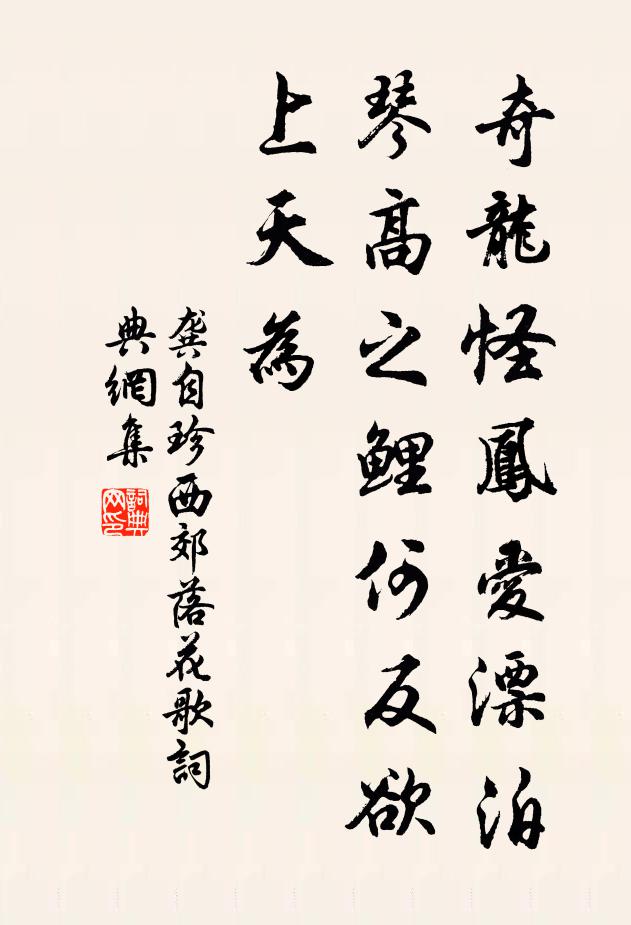 奇龍怪鳳愛漂泊
琴高之鯉何反欲
上天為
龔自珍西郊落花歌詞
典網集
詞典网印